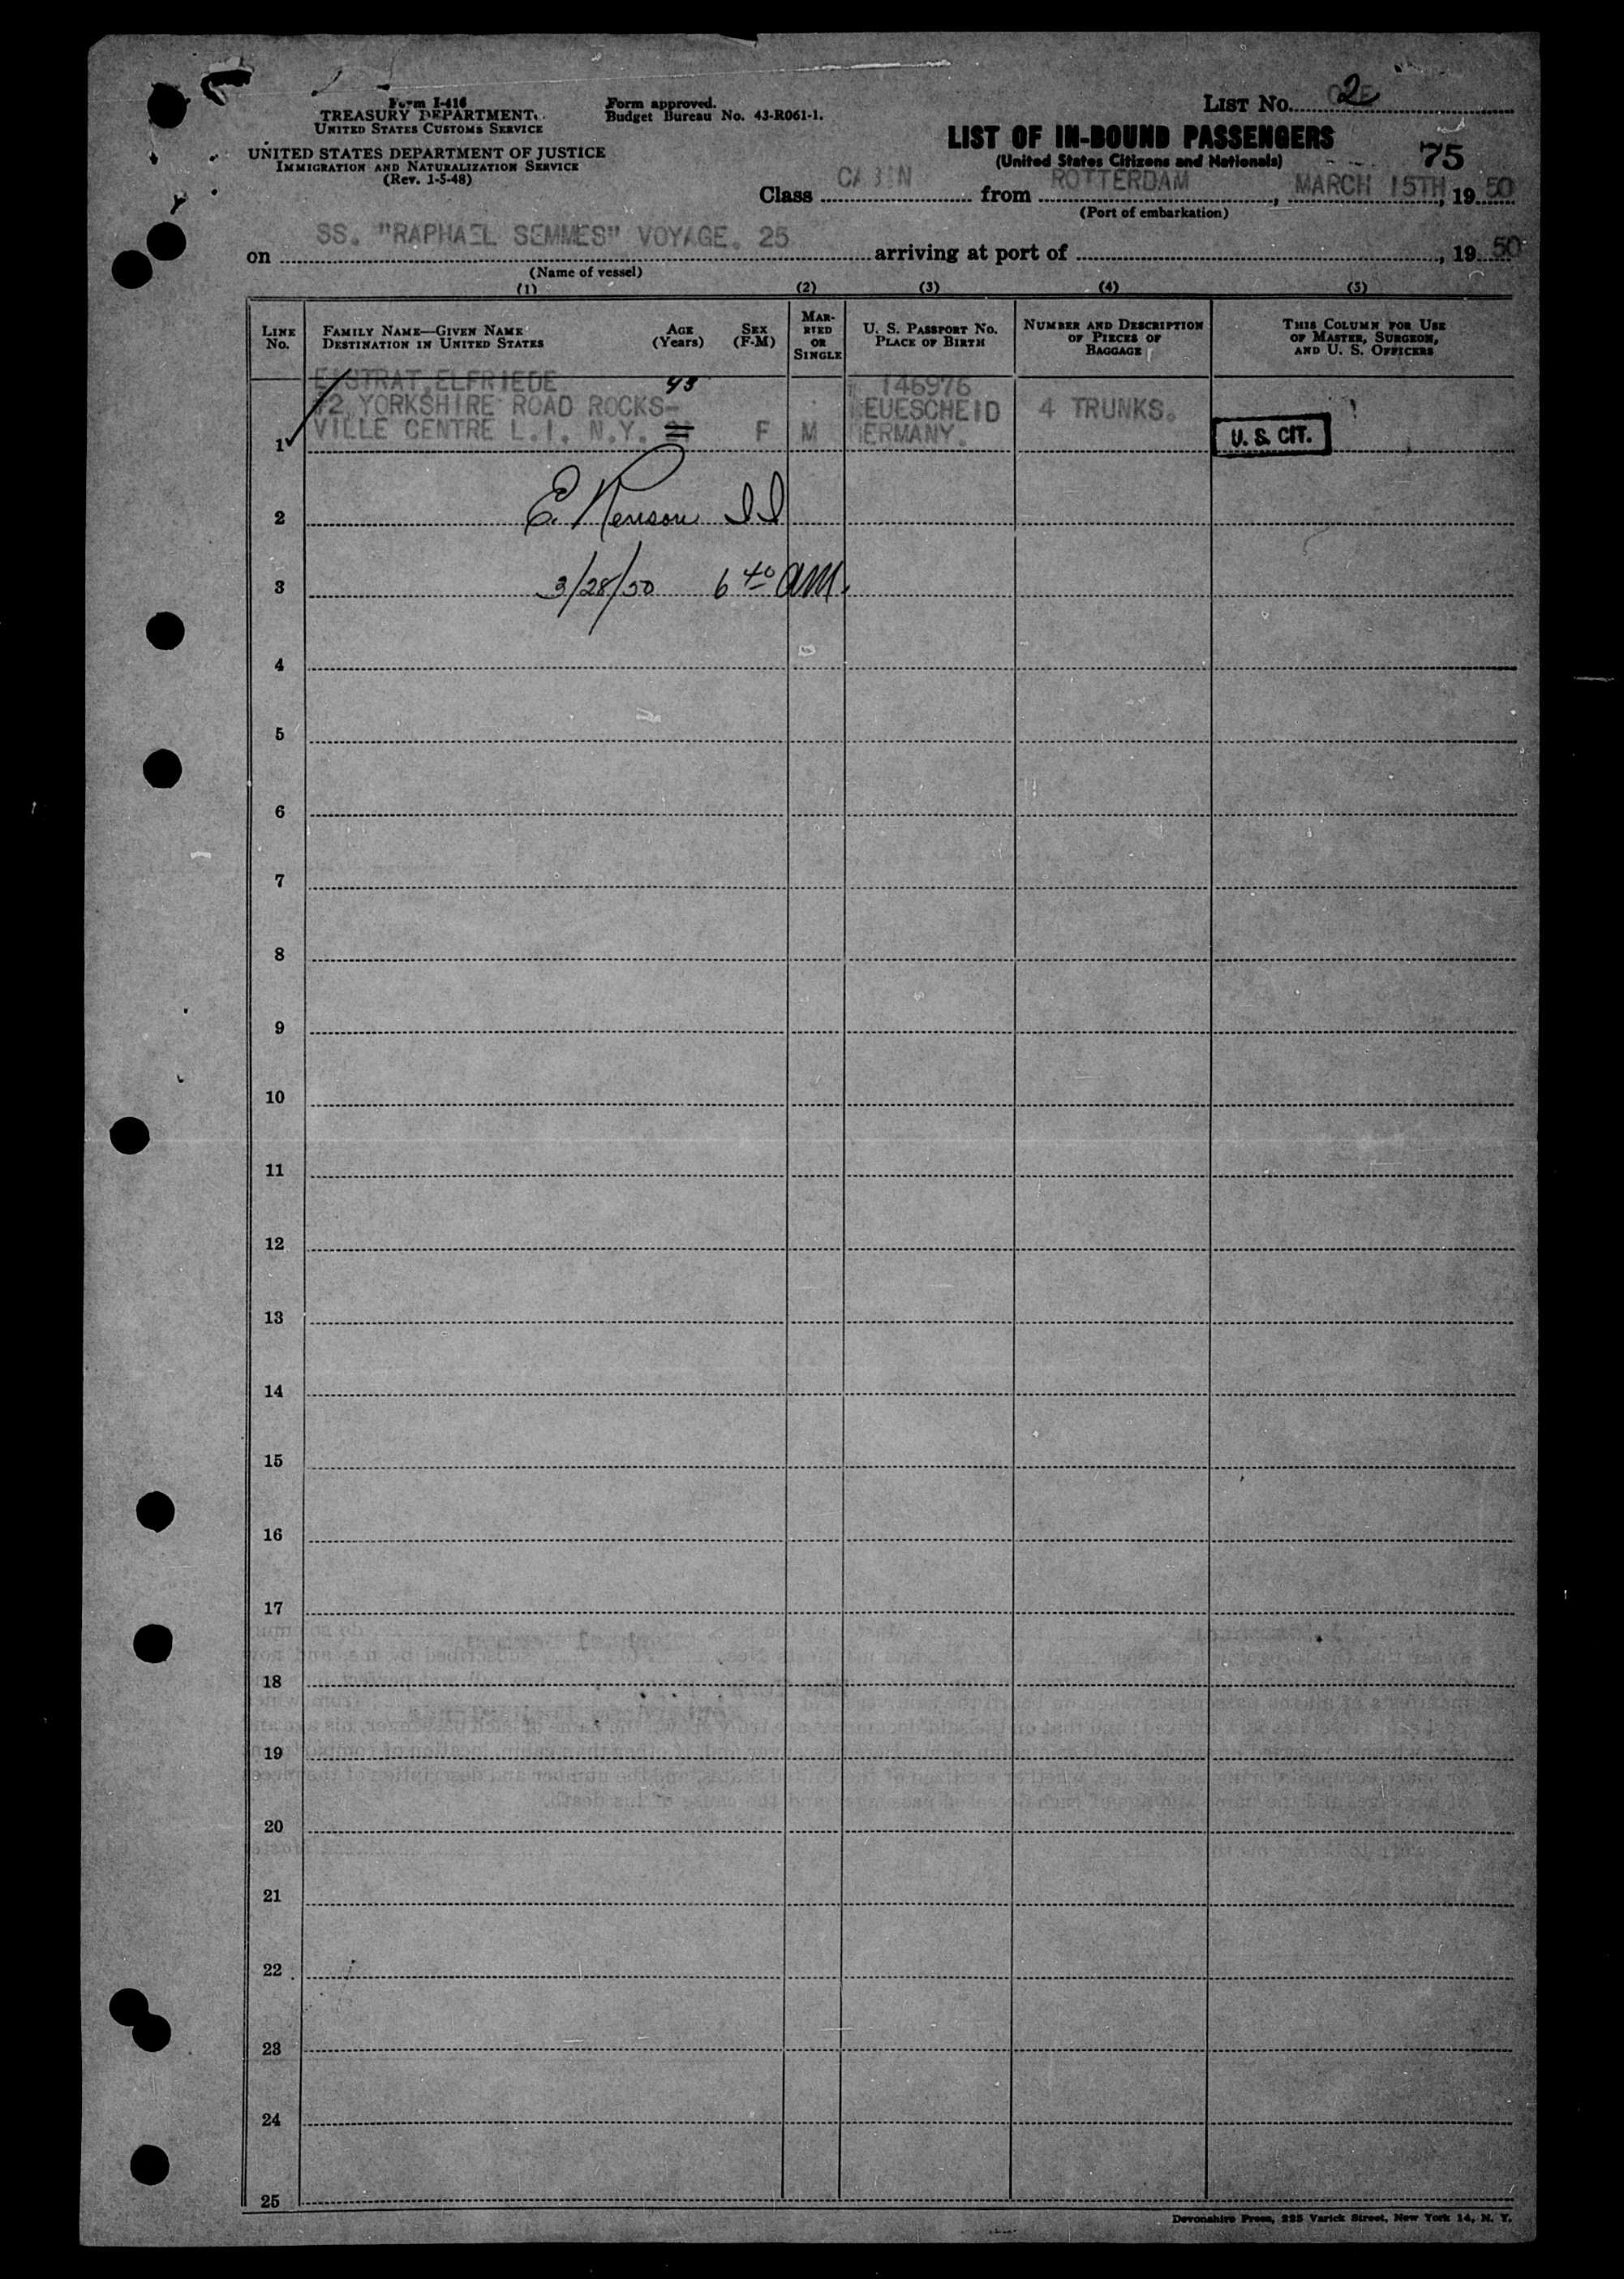 Form I-416
TREASURY DEPARTMENT
UNITED STATES CUSTOMS SERVICE
UNITED STATES DEPARTMENT OF JUSTICE
IMMIGRATION AND NATURALIZATION SERVICE
(Rev. 1-5-48)
Form approved.
Budget Bureau No. 43-R061-1.
LIST No. 2
LIST OF IN-BOUND PASSENGERS
(United States Citizens and Nationals)
75
Class CABIN from ROTTERDAM, MARCH 15TH, 1950
(Port of embarkation)
on SS. "RAPHAEL SEMMES" VOYAGE. 25 arriving at port of , 19 50
(Name of vessel)
(1) (2) (3) (4) (5)
LINE No.
FAMILY NAME—GIVEN NAME
DESTINATION IN UNITED STATES
AGE (Years)
SEX (F-M)
MARRIED OR SINGLE
U. S. PASSPORT No.
PLACE OF BIRTH
NUMBER AND DESCRIPTION OF PIECES OF BAGGAGE
THIS COLUMN FOR USE OF MASTER, SURGEON, AND U. S. OFFICERS
ELFRIEDE 43 146976
YORKSHIRE ROAD ROCKS- EUESCHEID 4 TRUNKS.
1 VILLE CENTRE L.I. N.Y. F M ERMANY. U. S. CIT.
2 E.
3 3/28/50 6 40 AM.
4
5
6
7
8
9
10
11
12
13
14
15
16
17
18
19
20
21
22
23
24
25
Devonshire Press, 225 Varick Street, New York 14, N. Y.